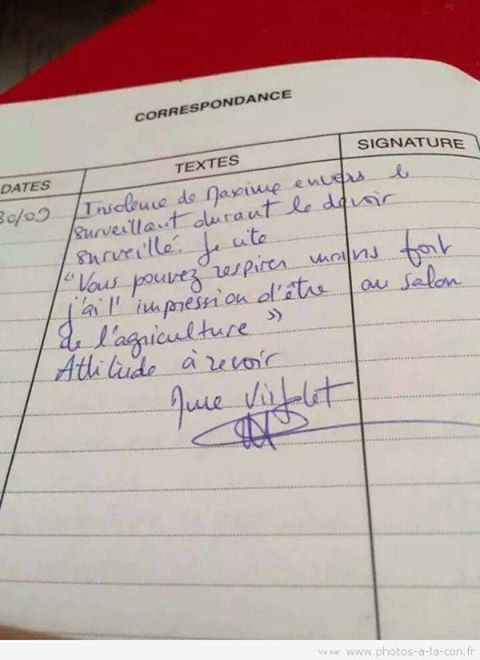 CORRESPONDANCE
DATES TEXTES SIGNATURE
30/09 Insolence de Maxime envers le
surveillant durant le devoir
surveillé. Je cite
"Vous pouvez respirer moins fort
j'ai l'impression d'être au salon
de l'agriculture »
Attitude à revoir
Mme
www.photos-a-la-con.fr